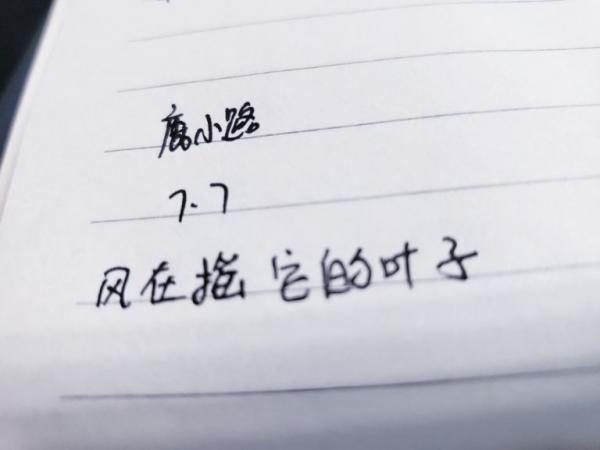 唐小路
7.7
风在摇它的叶子